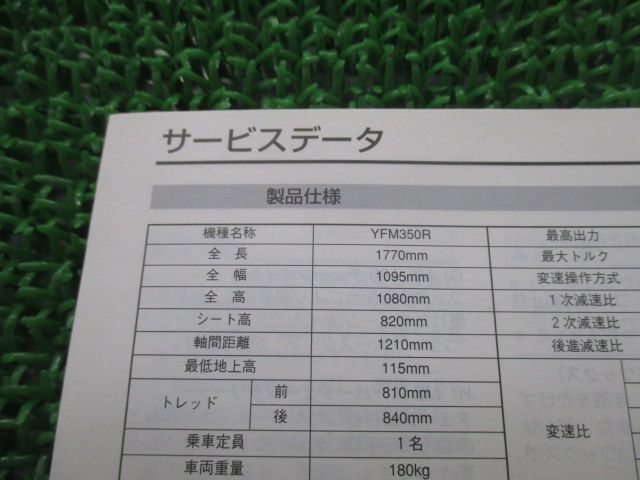 サービスデータ
製品仕様
機種名称 YFM350R 最高出力
全 長 1770mm 最大トルク
全 幅 1095mm 変速操作方式
全 高 1080mm 1次減速比
シート高 820mm 2次減速比
軸間距離 1210mm 後進減速比
最低地上高 115mm
トレッド 前 810mm
後 840mm
変速比
乗車定員 1名
車両重量 180kg